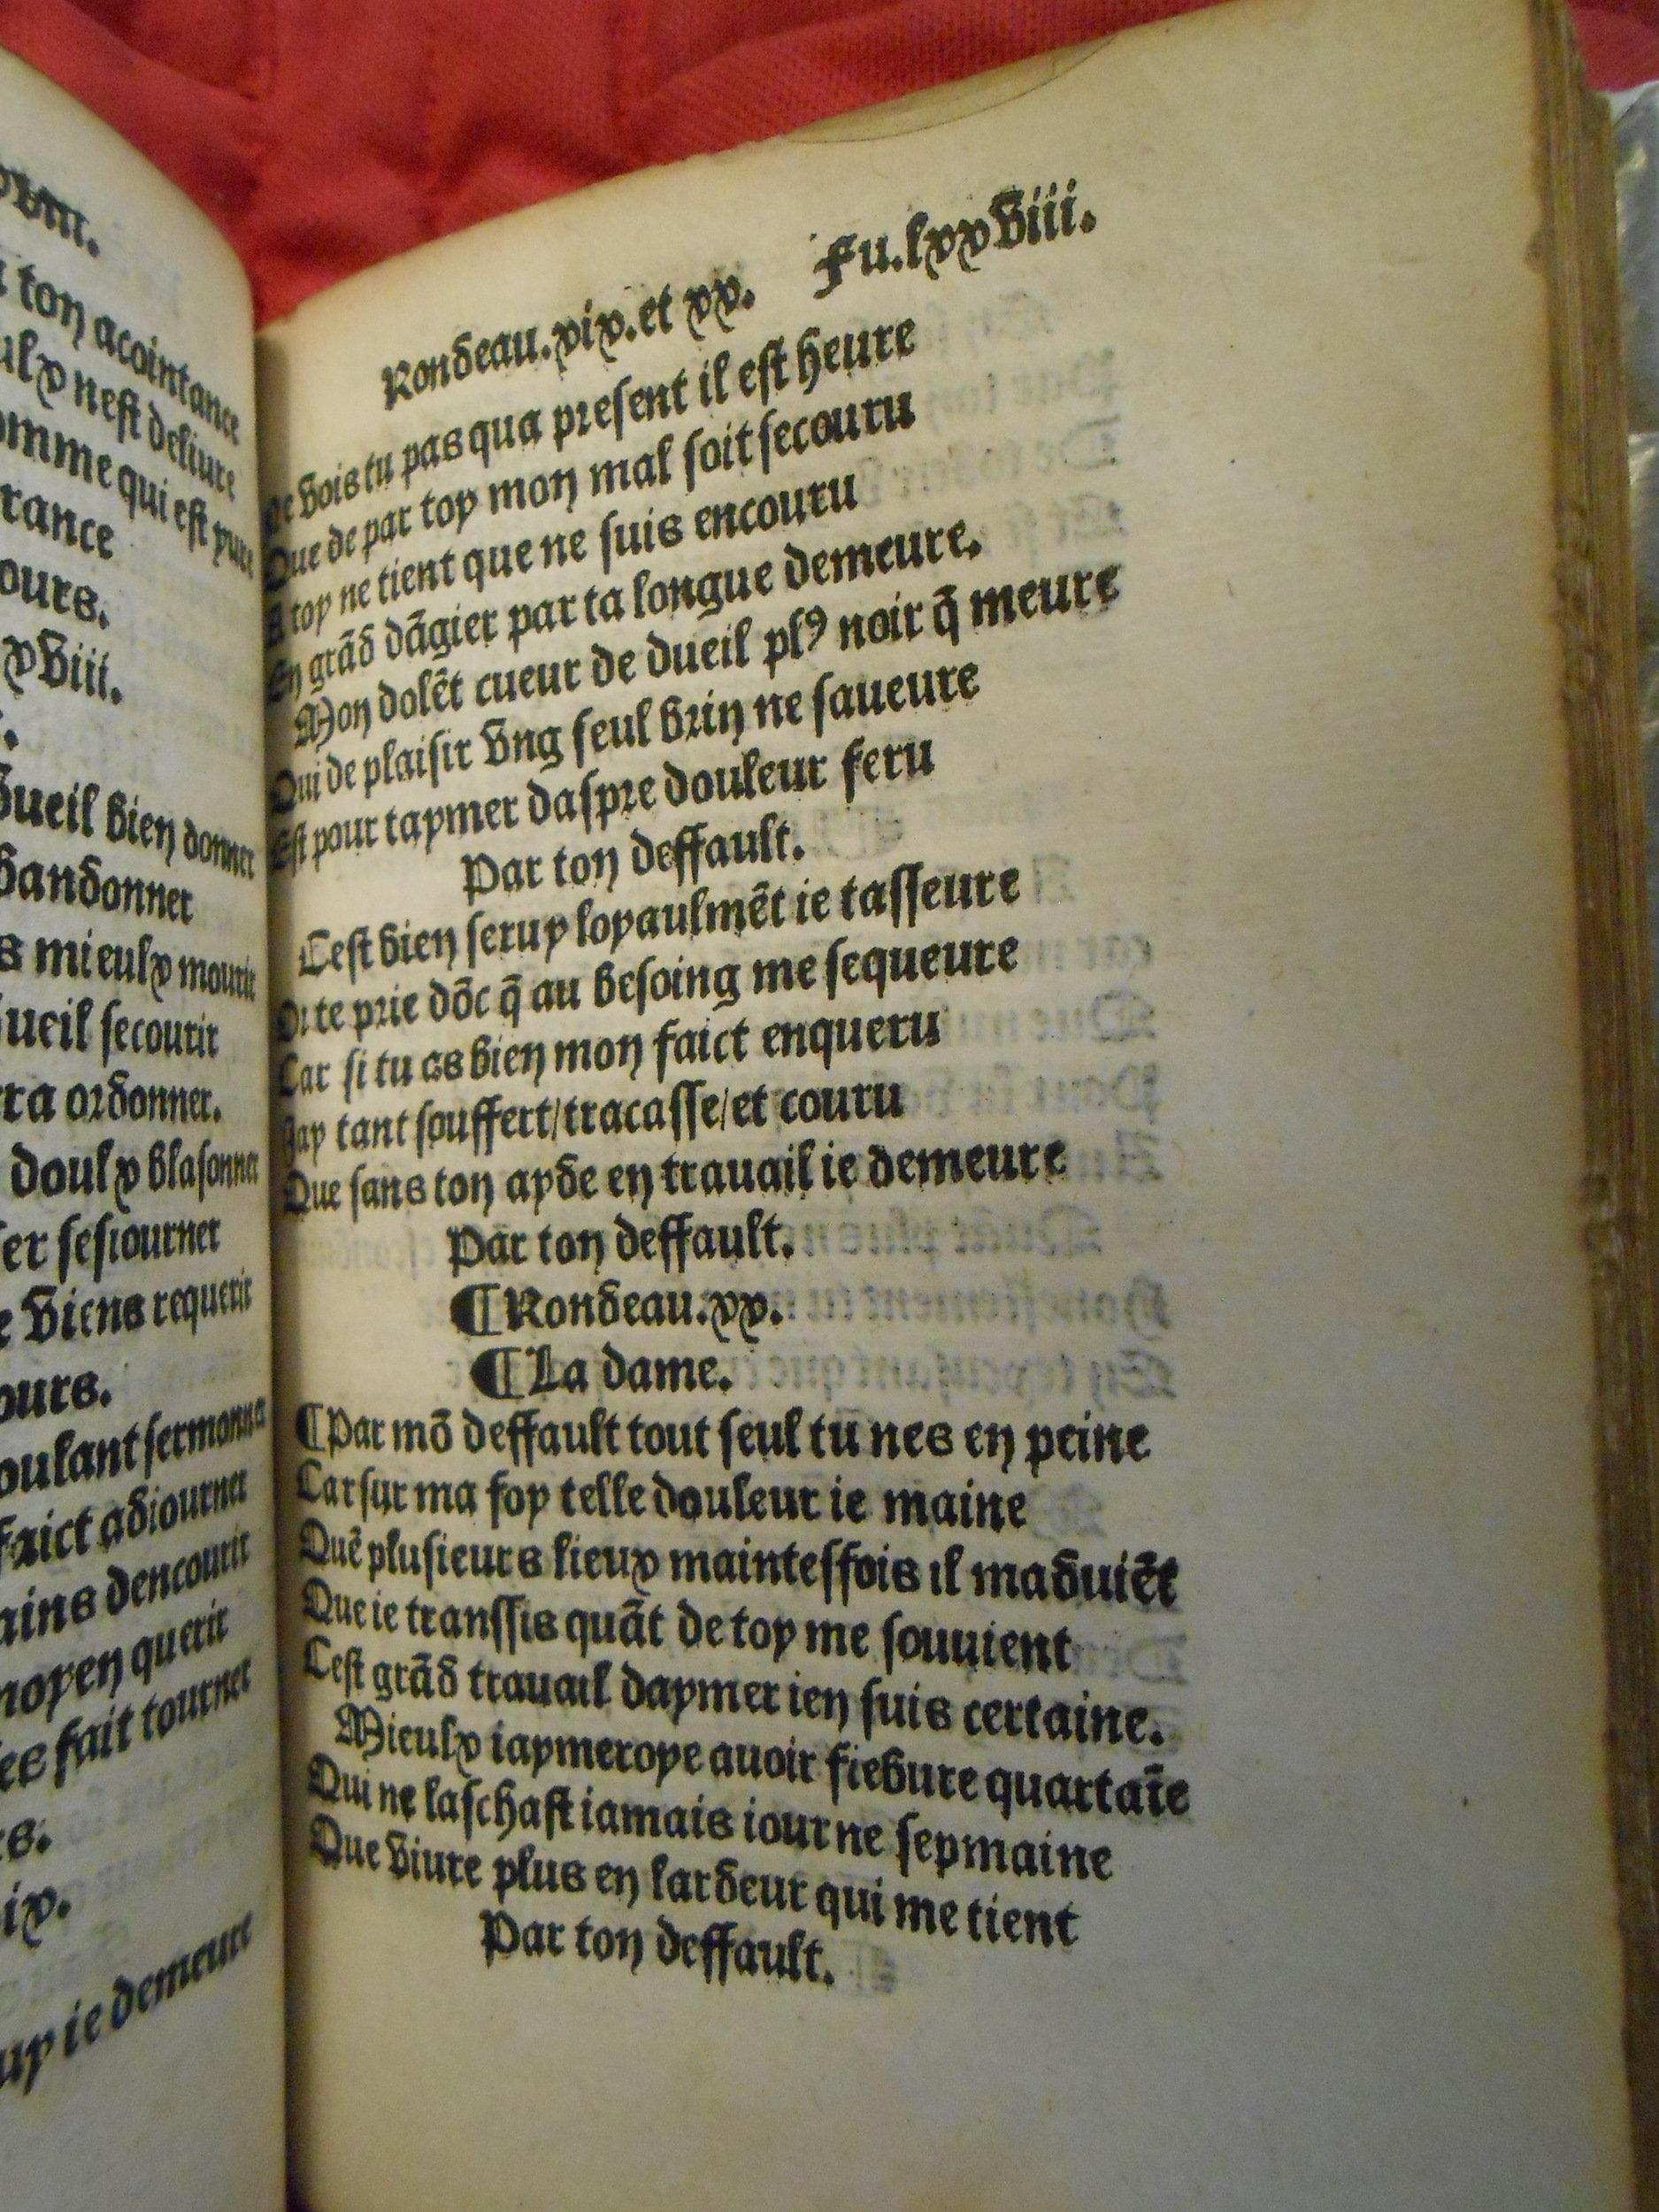 ton acointance
nest deliure
qui est pure
rance
ours.
xviii.
vueil bien donner
bandonner
s mieulx mourir
ueil secourir
ra ordonner.
doulx blasonner
er sesiourner
e viens requerir
ours.
oulant sermonner
faict adiourner
ains dencourir
moyen querir
es fait tourner
s.
ix.
uy ie demeure
Rondeau.xix.et xx. Fu.lxxviii.
Ne vois tu pas qua present il est heure
Que de par toy mon mal soit secouru
A toy ne tient que ne suis encouru
En grãd dãgier par ta longue demeure.
Mon dolẽt cueur de dueil plꝰ noir q̃ meure
Qui de plaisir vng seul brin ne saueure
Est pour taymer daspre douleur feru
Par ton deffault.
Cest bien seruy loyaulmẽt ie tasseure
Or te prie dõc q̃ au besoing me sequeure
Car si tu as bien mon faict enqueru
Jay tant souffert/tracasse/et couru
Que sans ton ayde en trauail ie demeure
Par ton deffault.
¶Rondeau.xx.
¶La dame.
¶Par mõ deffault tout seul tu nes en peine
Car sur ma foy telle douleur ie maine
Quẽ plusieurs lieux maintesfois il maduiẽt
Que ie transsis quãt de toy me souuient
Cest grãd trauail daymer ien suis certaine.
Mieulx iaymeroye auoir fiebure quartaĩe
Qui ne laschast iamais iour ne sepmaine
Que viure plus en lardeur qui me tient
Par ton deffault.